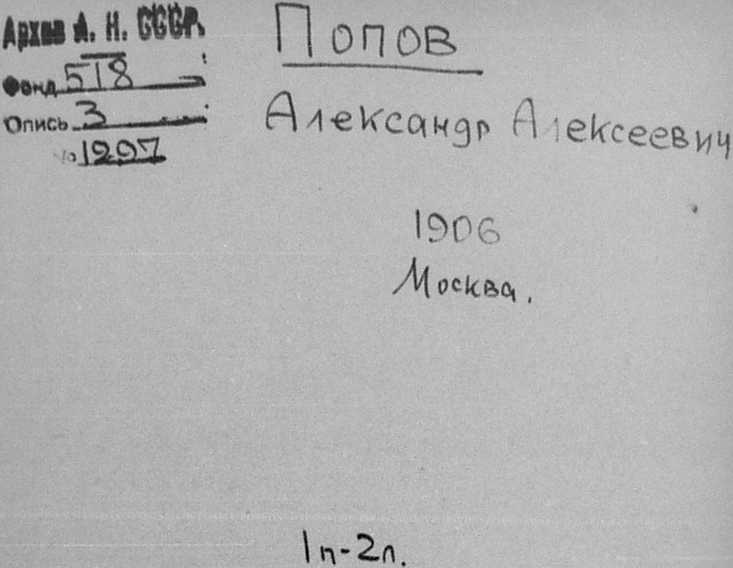 Архив А. Н. СССР.
Фонд 518
Опись 3
№ 1297
Попов
Александр Алексеевич
1906
Москва.
1п-2л.